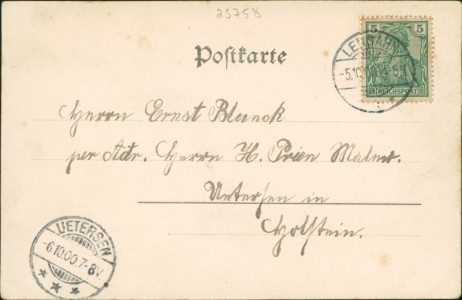 23758
Postkarte
5 5
LENSAHN
-5.10.00
Herrn Ernst Blunck
per Adr. Herrn H. Prien Maler.
Uetersen in
Holstein.
UETERSEN
-6.10.00.7-8V.